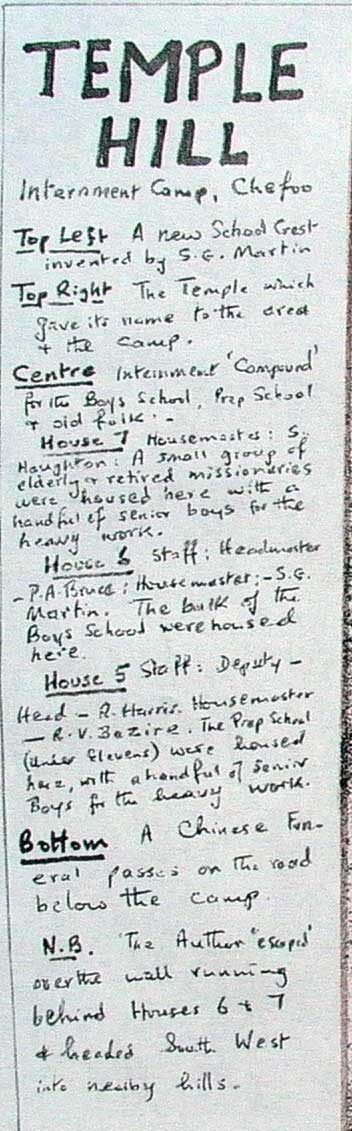 TEMPLE
HILL
Internment Camp, Chefoo
Top Left A new School Crest
invented by S.G. Martin
Top Right The Temple which
gave its name to the area
+ the camp.
Centre Internment 'Compound'
for the Boys School, Prep School
+ old folk :-
House 7 Housemaster: S.
Houghton: A small group of
elderly + retired missionaries
were housed here with a
handful of senior boys for the
heavy work.
House 6 Staff: Headmaster
- P.A. Bruce; Housemaster:- S.G.
Martin. The bulk of the
Boys School were housed
here.
House 5 Staff: Deputy -
Head - R. Harris. Housemaster
- R.V. Bazire. The Prep School
(under Elevens) were housed
here, with a handful of Senior
Boys for the heavy work.
Bottom A Chinese Fun-
eral passes on the road
below the camp.
N.B. The Author "escaped"
over the wall running
behind Houses 6 + 7
& headed South West
into nearby hills.